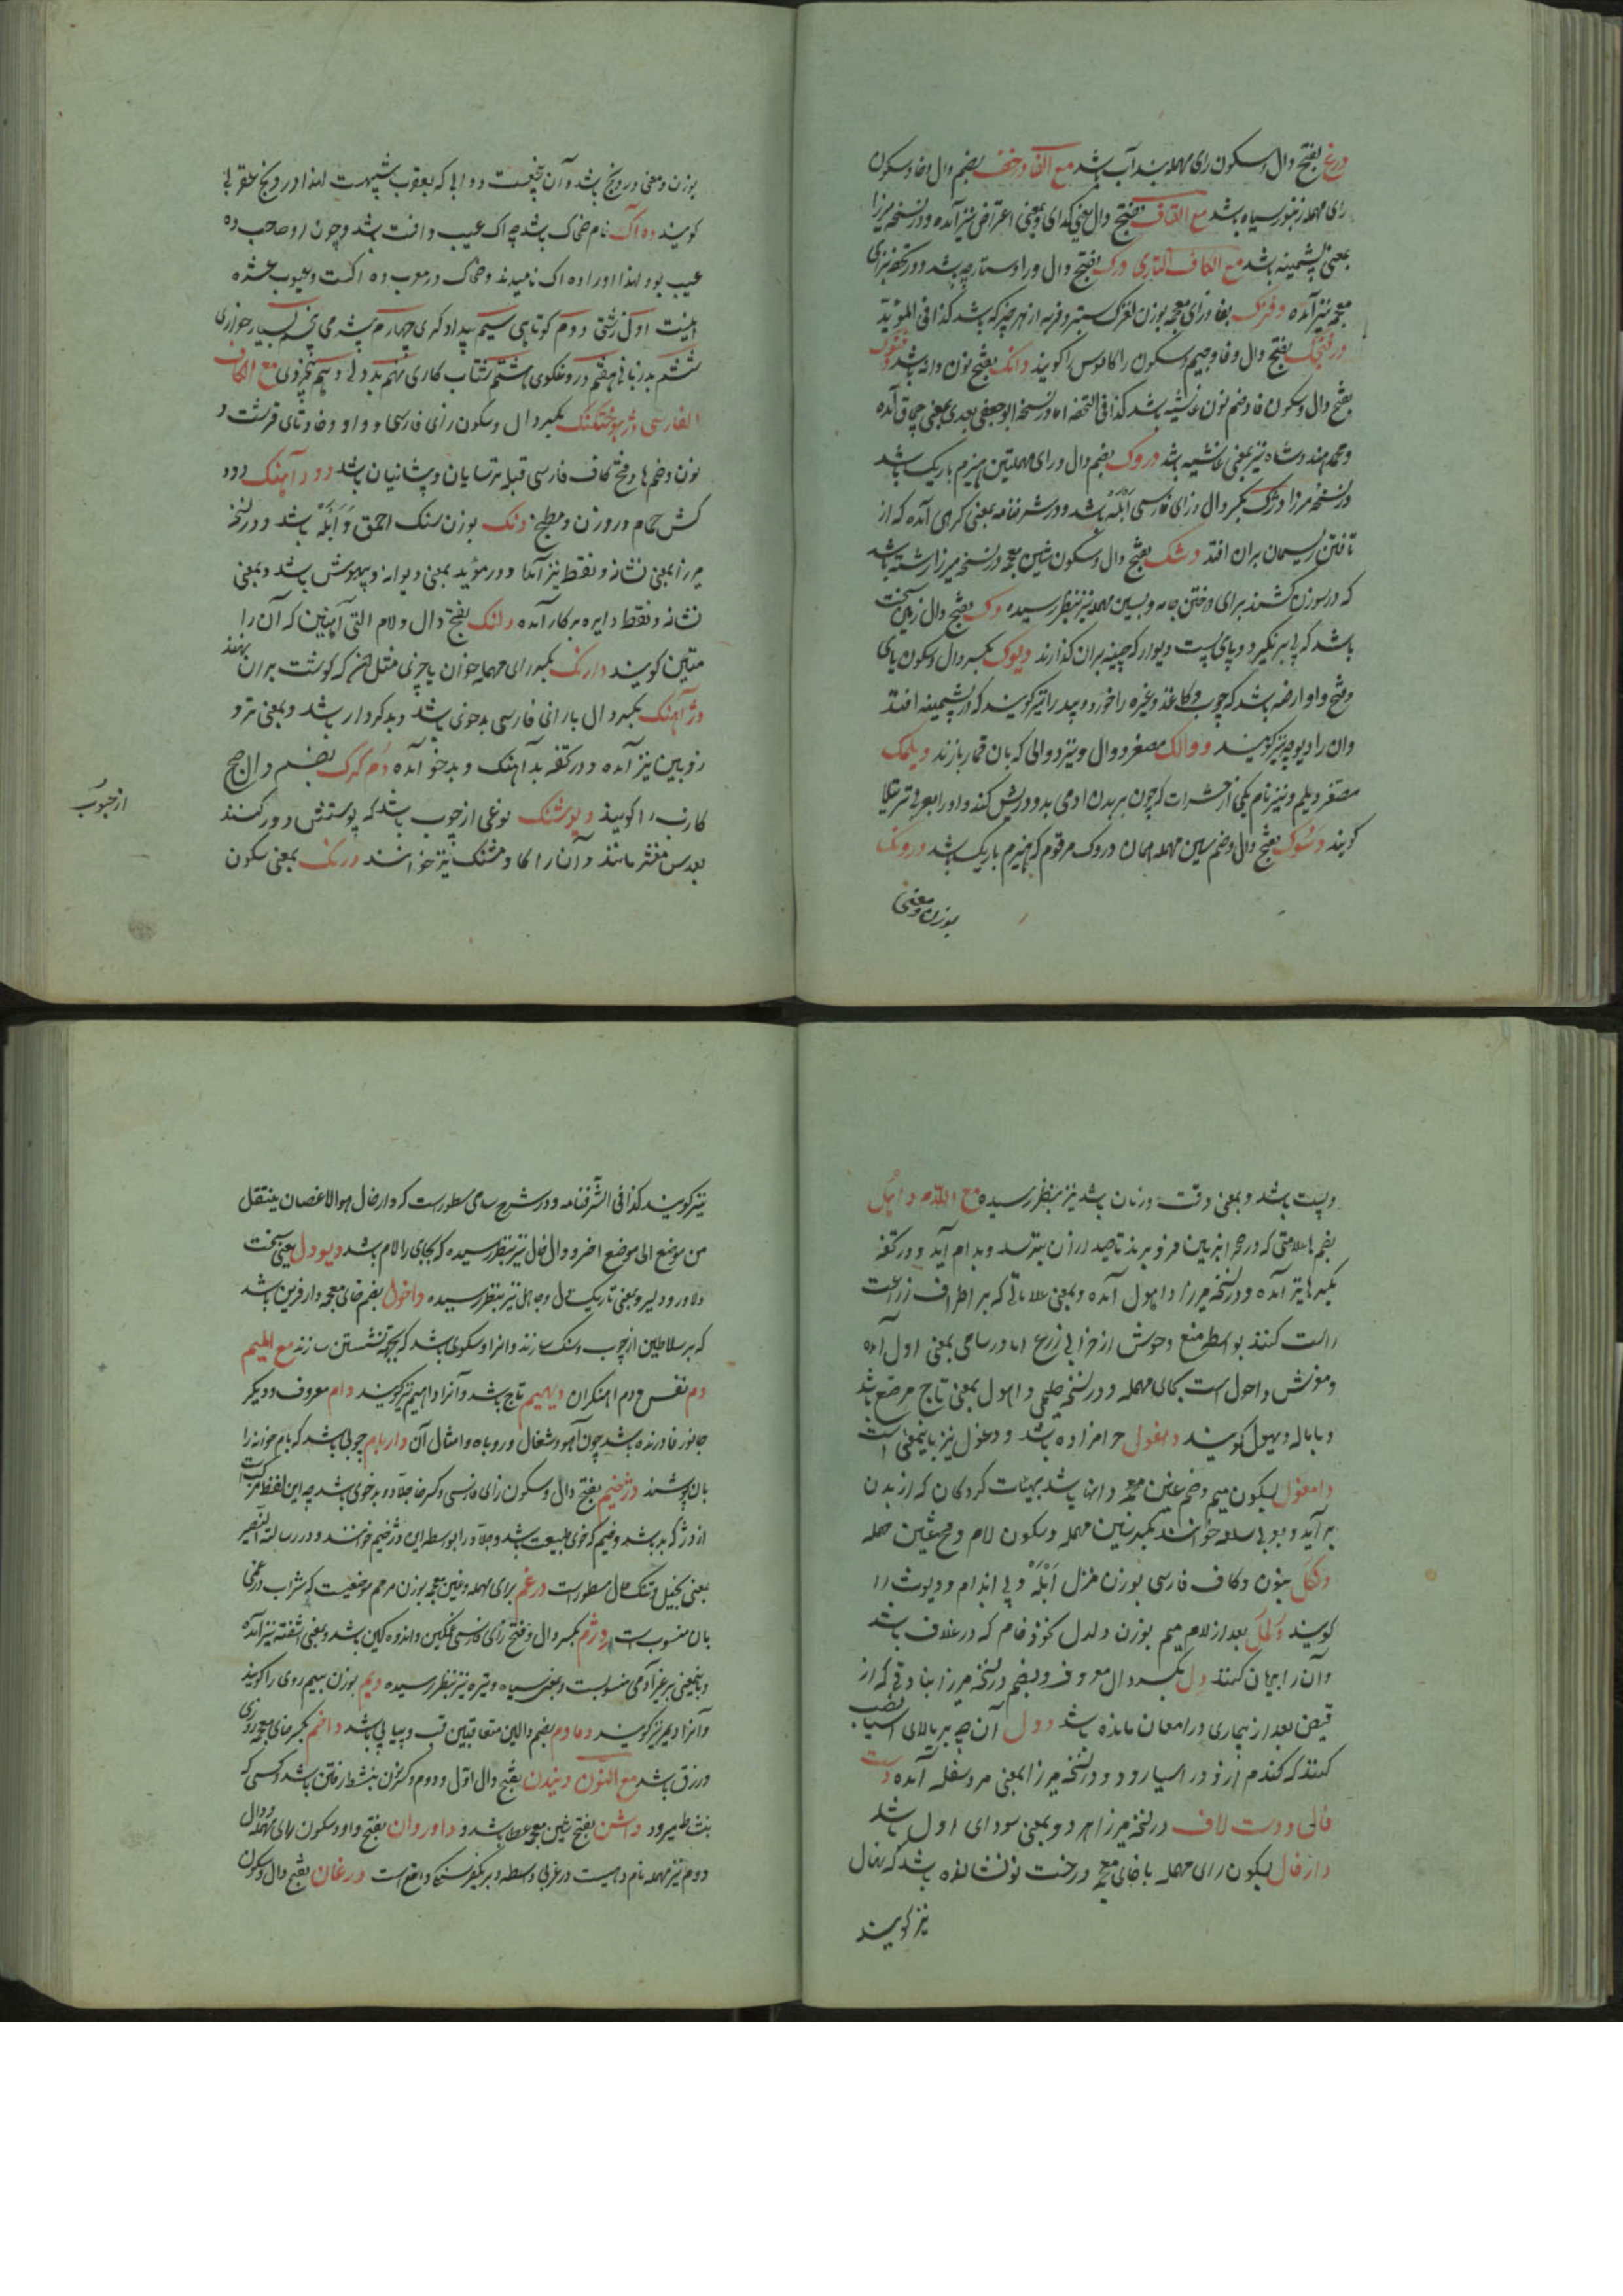 درغ بفتح دال و سکون رای مهمله بند آب باشد مع الفا درخف بضم دال و خا و سکون
رای مهمله زنبور سیاه باشد مع القاف بفتح دال یعنی گدای و بمعنی اعتراض نیز آمده و در نسخه میرزا
بمعنی پشمینه باشد مع الکاف التازی درک بفتح دال و را دستارچه باشد و در تحفه بزای
معجمه نیز آمده دفزک بفا و زای معجمه بوزن لغزک ستبر و فربه از هر چیز که باشد کذا فی المؤید
بفتح دال و فا و جیم و سکون را کابوس را کویند دانک بفتح نون دانه باشد
بفتح دال و سکون فا و ضم نون غاشیه باشد کذا فی التحفه اما در نسخه ابو حفص سعدی بمعنی چماق آمده
و محمد هندوشاه نیز بمعنی غاشیه باشد دروک بضم دال و رای مهملتین هیزم باریک باشد
در نسخه میرزا دژک بکسر دال و زای فارسی آبله باشد و در شرفنامه بمعنی کرهی آمده که از
تافتن ریسمان بران افتد دشک بفتح دال و سکون شین معجمه در نسخه میرزا رشته باشد
که در سوزن کشند برای دوختن جامه و بسین مهمله نیز بنظر رسیده دک بفتح دال زمین سخت
باشد که پی بر نگیرد و پای پست دیوار که چینه بران کذارند دیوک بکسر دال و سکون یای
و فتح واو ارضه باشد که چوب و کاغذ و غیره را خورد و بید را نیز کویند که در پشمینه افتد
وان را دیوچه نیز کویند دوالک مصغر دوال و نیز دوالی که بان قمار بازند دیلمک
مصغر دیلم و نیز نام یکی از حشرات که چون بر بدن ادمی بدود ریش کند و او را بعربی رتیلا
کویند دسوک بفتح دال و ضم سین مهمله همان دروک مرقوم که هیزم باریک باشد درونک
بوزن و معنی
بوزن و معنی درونج باشد و آن بیخیست دوایی که بعقرب شبیهست لهذا درونج عقربی
کویند ده آک نام ضحاک باشد چه اک عیب و افت باشد و چون او صاحب ده
عیب بود لهذا او را ده اک نامیدند و ضحاک در معرب ده اکست و عیوب عشره
اینست اول زشتی دوم کوتاهی سیم بیدادکری چهارم بیشرمی پنجم بسیار خواری
ششم بدزبانی هفتم دروغکوی هشتم شتاب کاری نهم بددلی دهم بیخردی مع الکاف
الفارسی دژ هوختکنک بکسر دال و سکون زای فارسی و واو و خا و تای قرشت و
نون و ضم ها و فتح کاف فارسی قبله ترسایان و پیشانیان باشد دود آهنک دود
کش حمام و روزن و مطبخ دنک بوزن سنک احمق و ابله باشد و در نسخه
میرزا بمعنی نشانه و نقطه نیز آمده و در مؤید بمعنی دیوانه و بیهوش باشد و بمعنی
نشانه و نقطه دایره پرکار آمده دلنک بفتح دال و لام التی آهنین که آن را
متین کویند دارنک بکسر رای مهمله خوان یا چیزی مثل آن که کوشت بران نهند
دژآهنک بکسر دال با رانی فارسی بدخوی باشد و بدکردار باشد و بمعنی تر و
زوبین نیز آمده و در تحفه بدآهنک و بدخو آمده دم کرک بضم دال صبح
کاذب را کویند دیوشنک نوعی از چوب باشد که پوستش دور کنند
بعدس مقشر مانند و آن را کاومشنک نیز خوانند درنک بمعنی سکون
از حبوب
و پست باشد و بمعنی وقت و زمان باشد نیز بنظر رسیده مع اللام داهل
بضم ها علامتی که در صحرا بزمین فرو برند تا صید از آن بترسد و بدام آید و در تحفه
بکسر ها نیز آمده و در نسخه میرزا داهول آمده و بمعنی علاماتی که بر اطراف زراعت
راست کنند بواسطه منع وحوش از خرابی زرع اما در سامی بمعنی اول آمده
و مونش داحول است بحای مهمله و در نسخه حلیمی داهول بمعنی تاج مرصع باشد
و باماله دیهول کویند دغول حرامزاده باشد و دغول نیز باینمعنی است
دامغول بسکون میم و ضم غین معجمه دانها باشد بهیئات کردکان که از بدن
برآید و بعربی سلعه خوانند بکسر سین مهمله و سکون لام و فتح عین مهمله
دنکل بنون و کاف فارسی بوزن منزل ابله و بی اندام و دیوث را
کویند دلمل بعد از لام میم بوزن دلدل نخود خام که در غلاف باشد
وآن را بریان کنند دل بکسر دال معروف و بضم در نسخه میرزا بنادقی که از
قبض بعد از بیماری در امعا مانده باشد دول آن چه بر بالای آسیا نصب
کنند که کندم از او در اسیا رود و در نسخه میرزا بمعنی مرد سفله آمده دست
فالی و دست لاف در نسخه میرزا هر دو بمعنی سودای اول باشد
دارخال بسکون رای مهمله با خای معجمه درخت نونشانده باشد که نهال
نیز کویند
نیز کویند کذا فی الشرفنامه و در شرح سامی مسطورست که دارخال هو الاغصان ینتقل
من موضع الی موضع اخر و دال خال نیز بنظر رسیده که بجای را لام باشد دیودل یعنی سخت
دلاور و دلیر و بمعنی تاریک دل و جاهل نیز بنظر رسیده داخول بضم خای معجمه دارفرین باشد
که بر سلاطین از چوب و سنک سازند و انرا دسکوطی باشد که بجهة نشستن سازند مع المیم
دم نفس و دم اهنکران دیهیم تاج باشد و آنرا داهیم نیز کویند دام معروف و دیکر
جانور نادرنده باشد چون آهو و شغال و روباه و امثال آن دارباچم چوبی باشد که بام خانه را
بان پوشند دژخیم بفتح دال و سکون زای فارسی و کسر خا جلاد و بدخوی باشد چه این لفظ مرکبست
از دژ که بد باشد و خیم که خوی و طبیعت باشد و جلاد را بواسطه این دژخیم خوانند و در رساله النصیر
بمعنی بخیل و تنک حال مسطورست درغم برای مهمله و غین معجمه بوزن مرهم موضعیست که شراب درغمی
بان منسوبست دژم بکسر دال و فتح زای فارسی غمکین و اندوهکین باشد و بمعنی اشفته نیز آمده
و باینمعنی بر غیر آدمی منسوبست و بمعنی سیاه و تیره نیز بنظر رسیده دیم بوزن سیم روی را کویند
و آنرا دیمر نیز کویند دمادم بضم دالین متعاقبین قب و پیاپی باشد داخم بکسر خای معجمه روزی
و رزق باشد مع النون دنیدن بفتح دال اول و دوم و کسر نون بنشاط رفتن باشد و کسی که
بنشاط میرود داشن بفتح شین معجمه عطا باشد و داوروان بفتح واو و سکون رای مهمله و دال
دوم نیز مهمله نام دهیست در غربی واسط و بر یکفرسنکی واقع است درغان بفتح دال و سکون